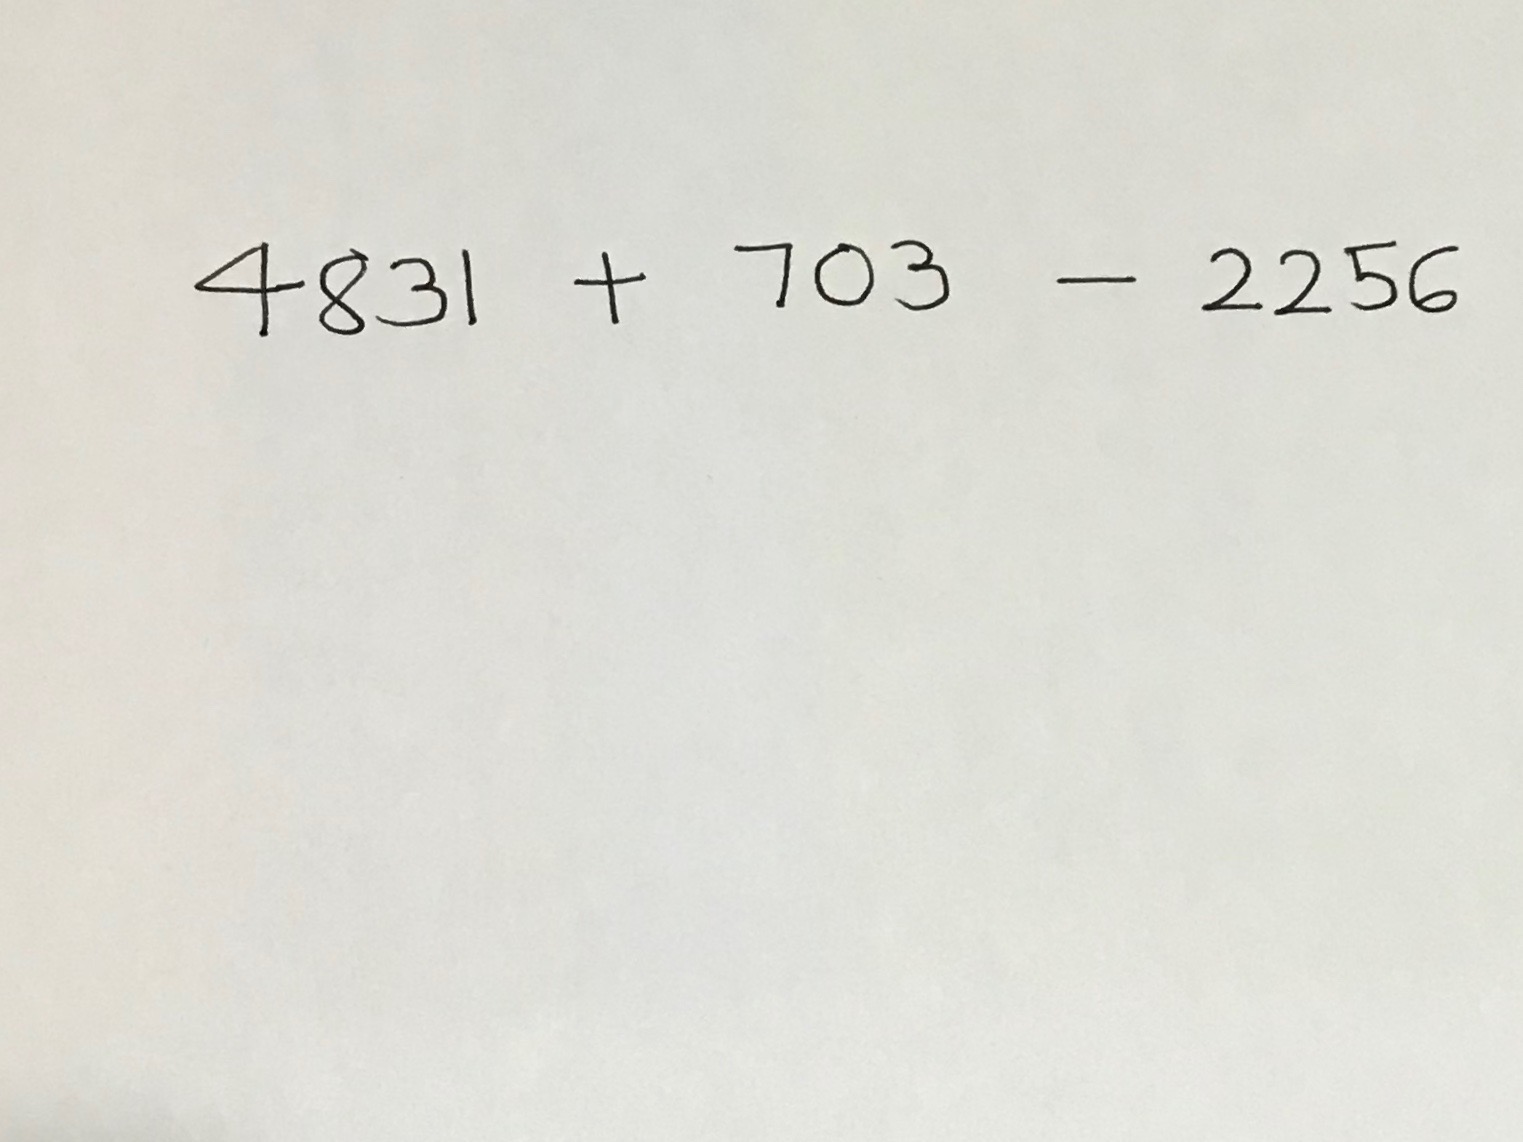 4831 + 703 - 2256